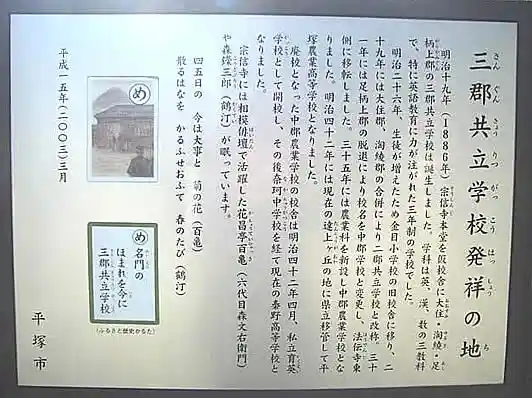 三郡共立学校発祥の地
さんぐんきょうりつがっこうはっしょうのち
明治十九年(1886年)宗信寺本堂を仮校舎に大住・淘綾・足
柄上郡の三郡共立学校は誕生しました。学科は英、漢、数の三教科
で、特に英語教育に力が注がれた三年制の学校でした。
明治二十六年、生徒が増えたため金目小学校の旧校舎に移り、二
十九年には大住郡、淘綾郡の合併により二郡共立学校と改称。三十
一年には足柄上郡の脱退により校名を中郡学校と変更し、法伝寺東
側に移転しました。三十五年には農業科を新設し中郡農業学校とな
りました。明治四十二年には現在の達上ヶ丘の地に県立移管して平
塚農業高等学校となりました。
廃校となった中郡農業学校の校舎は明治四十二年四月、私立育英
学校として開校し、その後奈珂中学校を経て現在の秦野高等学校と
なりました。
宗信寺には相模俳壇で活躍した花昌亭百亀(六代目森文右衛門)
や森鐸三郎(鶴汀)が眠っています。
四五日の 今は大事と 菊の花(百亀)
散るはなを かるふせおふて 春のたび(鶴汀)
平成一五年(二〇〇三)三月
め
め
名門の
ほまれを今に
三郡共立学校
(ふるさと歴史かるた)
平塚市